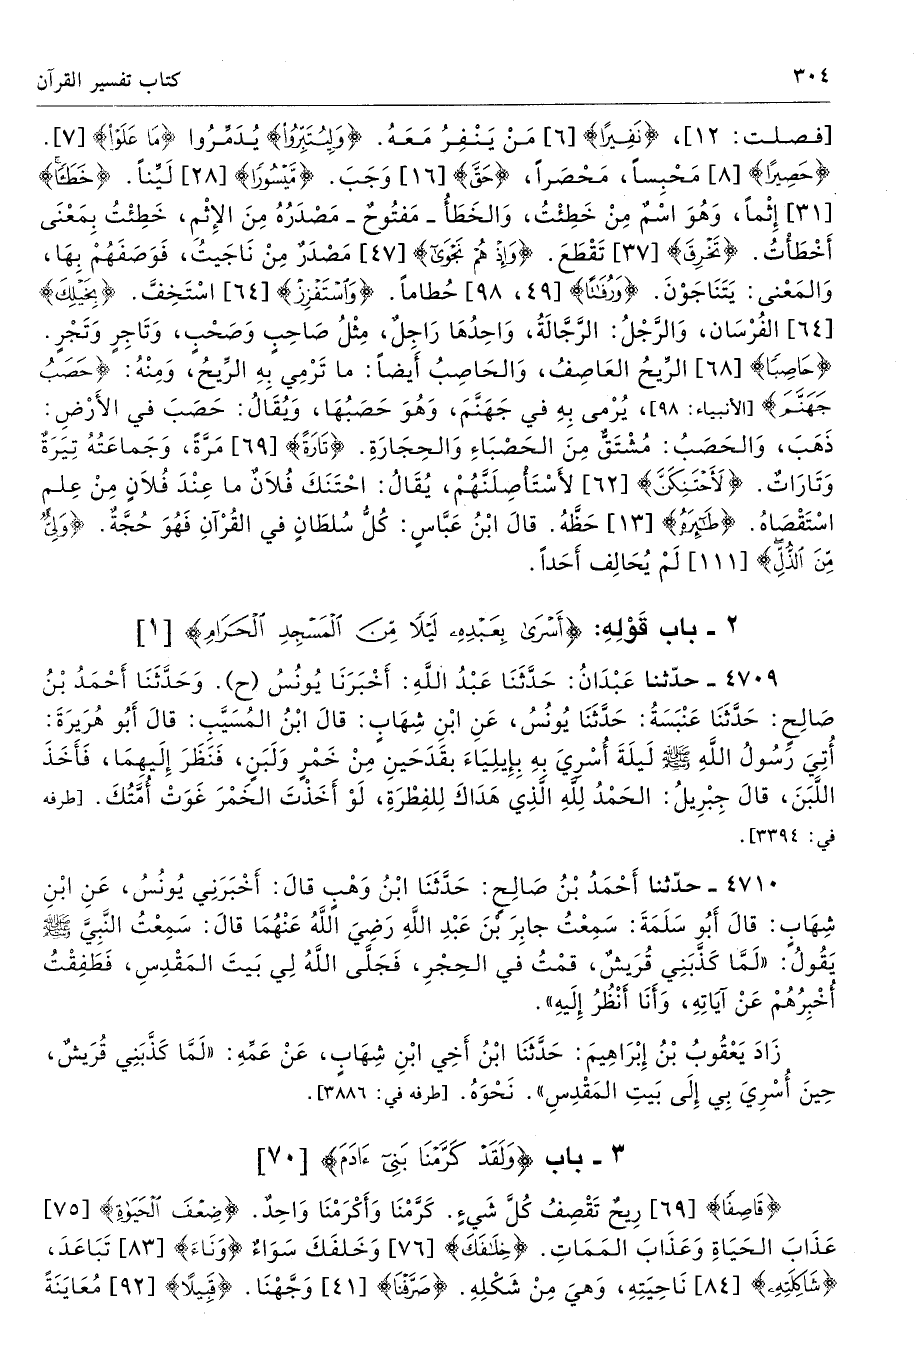 ٣٠٤ كتاب تفسير القرآن
[فصلت: ١٢]، ﴿نَفِيرًا﴾ [٦] مَنْ يَنْفِرُ مَعَهُ. ﴿وَلِيُتَبِّرُوا۟﴾ يُدَمِّرُوا ﴿مَا عَلَوْا۟﴾ [٧].
﴿حَصِيرًا﴾ [٨] مَحْبِساً، مَحْصَراً، ﴿حَقَّ﴾ [١٦] وَجَبَ. ﴿مَّيْسُورًا﴾ [٢٨] لَيِّناً. ﴿خِطْـًٔا﴾
[٣١] إِثْماً، وَهُوَ اسْمٌ مِنْ خَطِئْتُ، وَالخَطَأُ ـ مَفْتُوحٌ ـ مَصْدَرُهُ مِنَ الإِثْمِ، خَطِئْتُ بِمَعْنَى
أَخْطَأْتُ. ﴿تَخْرِقَ﴾ [٣٧] تَقْطَعَ. ﴿وَإِذْ هُمْ نَجْوَىٰٓ﴾ [٤٧] مَصْدَرٌ مِنْ نَاجَيتُ، فَوَصَفَهُمْ بِهَا،
وَالمَعْنى: يَتَنَاجَوْنَ. ﴿وَرُفَـٰتًا﴾ [٤٩، ٩٨] حُطاماً. ﴿وَٱسْتَفْزِزْ﴾ [٦٤] اسْتَخِفَّ. ﴿بِخَيْلِكَ﴾
[٦٤] الفُرْسَان، وَالرَّجْلُ: الرَّجَّالَةُ، وَاحِدُهَا رَاجِلٌ، مِثْلُ صَاحِبٍ وَصَحْبٍ، وَتَاجِرٍ وَتَجْرٍ.
﴿حَاصِبًا﴾ [٦٨] الرِّيحُ العَاصِفُ، وَالحَاصِبُ أَيضاً: ما تَرْمِي بِهِ الرِّيحُ، وَمِنْهُ: ﴿حَصَبُ
جَهَنَّمَ﴾ [الأنبياء: ٩٨]، يُرْمى بِهِ في جَهَنَّمَ، وَهُوَ حَصَبُهَا، وَيُقَالُ: حَصَبَ في الأَرْضِ:
ذَهَبَ، وَالحَصَبُ: مُشْتَقٌّ مِنَ الحَصْبَاءِ وَالحِجَارَةِ. ﴿تَارَةً﴾ [٦٩] مَرَّةً، وَجَماعَتُهُ تِيَرَةٌ
وَتَارَاتٌ. ﴿لَأَحْتَنِكَنَّ﴾ [٦٢] لأَسْتَأْصِلَنَّهُمْ، يُقَالُ: احْتَنَكَ فُلاَنٌ ما عِنْدَ فُلاَنٍ مِنْ عِلمٍ
اسْتَقْصَاهُ. ﴿طَـٰٓئِرَهُۥ﴾ [١٣] حَظَّهُ. قالَ ابْنُ عَبَّاسٍ: كُلُّ سُلطَانٍ في القُرْآنِ فَهُوَ حُجَّةٌ. ﴿وَلِىٌّ
مِّنَ ٱلذُّلِّ﴾ [١١١] لَمْ يُحَالِف أَحَداً.
٢ ـ باب قَوْلِهِ: ﴿أَسْرَىٰ بِعَبْدِهِۦ لَيْلًا مِّنَ ٱلْمَسْجِدِ ٱلْحَرَامِ﴾ [١]
٤٧٠٩ ـ حدّثنا عَبْدَانُ: حَدَّثَنَا عَبْدُ اللَّهِ: أَخْبَرَنَا يُونُسُ (ح). وَحَدَّثَنَا أَحْمَدُ بْنُ
صَالِحٍ: حَدَّثَنَا عَنْبَسَةُ: حَدَّثَنَا يُونُسُ، عَنِ ابْنِ شِهَابٍ: قالَ ابْنُ المُسَيَّبِ: قالَ أَبُو هُرَيرَةَ:
أُتِيَ رَسُولُ اللَّهِ ﷺ لَيلَةَ أُسْرِيَ بِهِ بِإِيلِيَاءَ بِقَدَحَينِ مِنْ خَمْرٍ وَلَبَنٍ، فَنَظَرَ إِلَيهِمَا، فَأَخَذَ
اللَّبَنَ، قالَ جِبْرِيلُ: الحَمْدُ لِلَّهِ الَّذِي هَدَاكَ لِلفِطْرَةِ، لَوْ أَخَذْتَ الخَمْرَ غَوَتْ أُمَّتُكَ. [طرفه
في: ٣٣٩٤].
٤٧١٠ ـ حدّثنا أَحْمَدُ بْنُ صَالِحٍ: حَدَّثَنَا ابْنُ وَهْبٍ قالَ: أَخْبَرَنِي يُونُسُ، عَنِ ابْنِ
شِهَابٍ: قالَ أَبُو سَلَمَةَ: سَمِعْتُ جابِرَ بْنَ عَبْدِ اللَّهِ رَضِيَ اللَّهُ عَنْهُمَا قالَ: سَمِعْتُ النَّبِيَّ ﷺ
يَقُولُ: «لَمَّا كَذَّبَنِي قُرَيشٌ، قمْتُ في الحِجْرِ، فَجَلَّى اللَّهُ لِي بَيتَ المَقْدِسِ، فَطَفِقْتُ
أُخْبِرُهُمْ عَنْ آيَاتِهِ، وَأَنَا أَنْظُرُ إِلَيهِ».
زَادَ يَعْقُوبُ بْنُ إِبْرَاهِيمَ: حَدَّثَنَا ابْنُ أَخِي ابْنِ شِهَابٍ، عَنْ عَمِّهِ: «لَمَّا كَذَّبَنِي قُرَيشٌ،
حِينَ أُسْرِيَ بِي إِلَى بَيتِ المَقْدِسِ». نَحْوَهُ. [طرفه في: ٣٨٨٦].
٣ ـ باب ﴿وَلَقَدْ كَرَّمْنَا بَنِىٓ ءَادَمَ﴾ [٧٠]
﴿قَاصِفًا﴾ [٦٩] رِيحٌ تَقْصِفُ كُلَّ شَيءٍ. كَرَّمْنَا وَأَكْرَمْنَا وَاحِدٌ. ﴿ضِعْفَ ٱلْحَيَوٰةِ﴾ [٧٥]
عَذَابَ الحَيَاةِ وَعَذَابَ المَمَاتِ. ﴿خِلَـٰفَكَ﴾ [٧٦] وَخَلفَكَ سَوَاءٌ ﴿وَنَـَٔا﴾ [٨٣] تَبَاعَدَ،
﴿شَاكِلَتِهِۦ﴾ [٨٤] نَاحِيَتِهِ، وَهيَ مِنْ شَكْلِهِ. ﴿صَرَّفْنَا﴾ [٤١] وَجَّهْنَا. ﴿قَبِيلًا﴾ [٩٢] مُعَايَنَةً